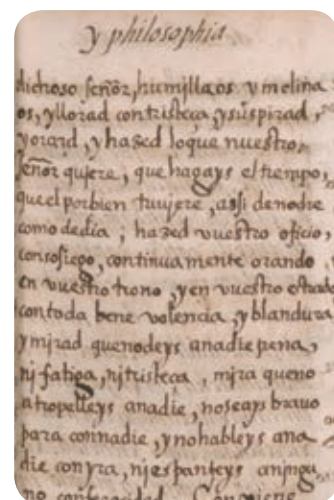 y philosophia
dichoso señor, humillaos y inclina
os, y llorad con tristeca, y suspirad,
y orad, y hazed lo que nuestro
señor quiere, que hagays el tiempo,
que el por bien tuuiere, assi de noche
como de dia; hazed vuestro oficio,
con sosiego, continuamente orando
en vuestro trono, y en vuestro estrado
con toda bene volencia, y blandura
y mirad que no deys a nadie pena,
ni fatiga, ni tristeca, mira que no
atropelleys a nadie, no seays brauo
para con nadie, y no hableys a na
die con yra, ni espanteys a ninguno
no con ferocidad. Conuiene